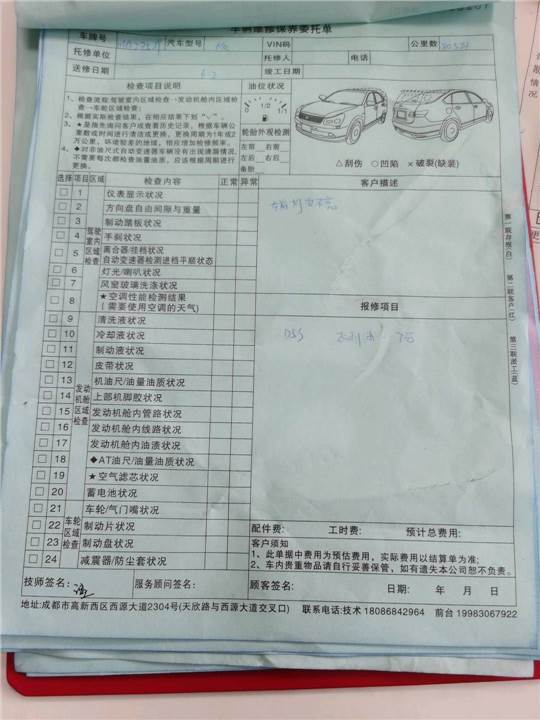 车辆维修保养委托单
车牌号 汽车型号 VIN码 公里数
托修单位 托修人 电话
送修日期 6-2 竣工日期
检查项目说明 油位状况
1、检查流程:驾驶室内区域检查→发动机舱内区域检查→车轮区域检查;
2、根据实际检查结果,在相应结果下划"✓"。
3、★是指先询问客户或查看历史记录,根据车辆公里数或时间进行清洁或更换,更换周期为1年或2万公里,环境较差的地域,相应增加检修频率。
4、◆对非油尺式自动变速器车辆没有出现渗漏情况,不需要每次都检查油量油质,应该根据周期进行更换。
0 1/2 1/1
轮胎外观检测
左前 右前
左后 右后
备胎
△刮伤 ○凹陷 ×破裂(缺装)
选择 项目 区域 检查内容 正常 异常 客户描述
驾驶室内区域检查
1 仪表显示状况
2 方向盘自由间隙与重量
3 制动踏板状况
4 手刹状况
5 离合器/挂档状况
自动变速器检测进档平顺状态
6 灯光/喇叭状况
7 风窗玻璃洗涤状况
8 ★空调性能检测结果
(需要使用空调的天气)
报修项目
发动机舱区域检查
9 清洗液状况
10 冷却液状况
11 制动液状况
12 皮带状况
13 机油尺/油量油质状况
14 上部机脚胶状况
15 发动机舱内管路状况
16 发动机舱内线路状况
17 发动机舱内油渍状况
18 ◆AT油尺/油量油质状况
19 ★空气滤芯状况
20 蓄电池状况
车轮区域检查
21 车轮/气门嘴状况
22 制动片状况
23 制动盘状况
24 减震器/防尘套状况
第一联存根(白) 第二联客户(红) 第三联派工(蓝)
配件费: 工时费: 预计总费用:
客户须知
1、此单据中费用为预估费用,实际费用以结算单为准;
2、车内贵重物品请自行妥善保管,如有遗失本公司恕不负责。
技师签名: 服务顾问签名: 顾客签名: 日期: 年 月 日
地址:成都市高新西区西源大道2304号(天欣路与西源大道交叉口) 联系电话:技术 18086842964 前台 19983067922